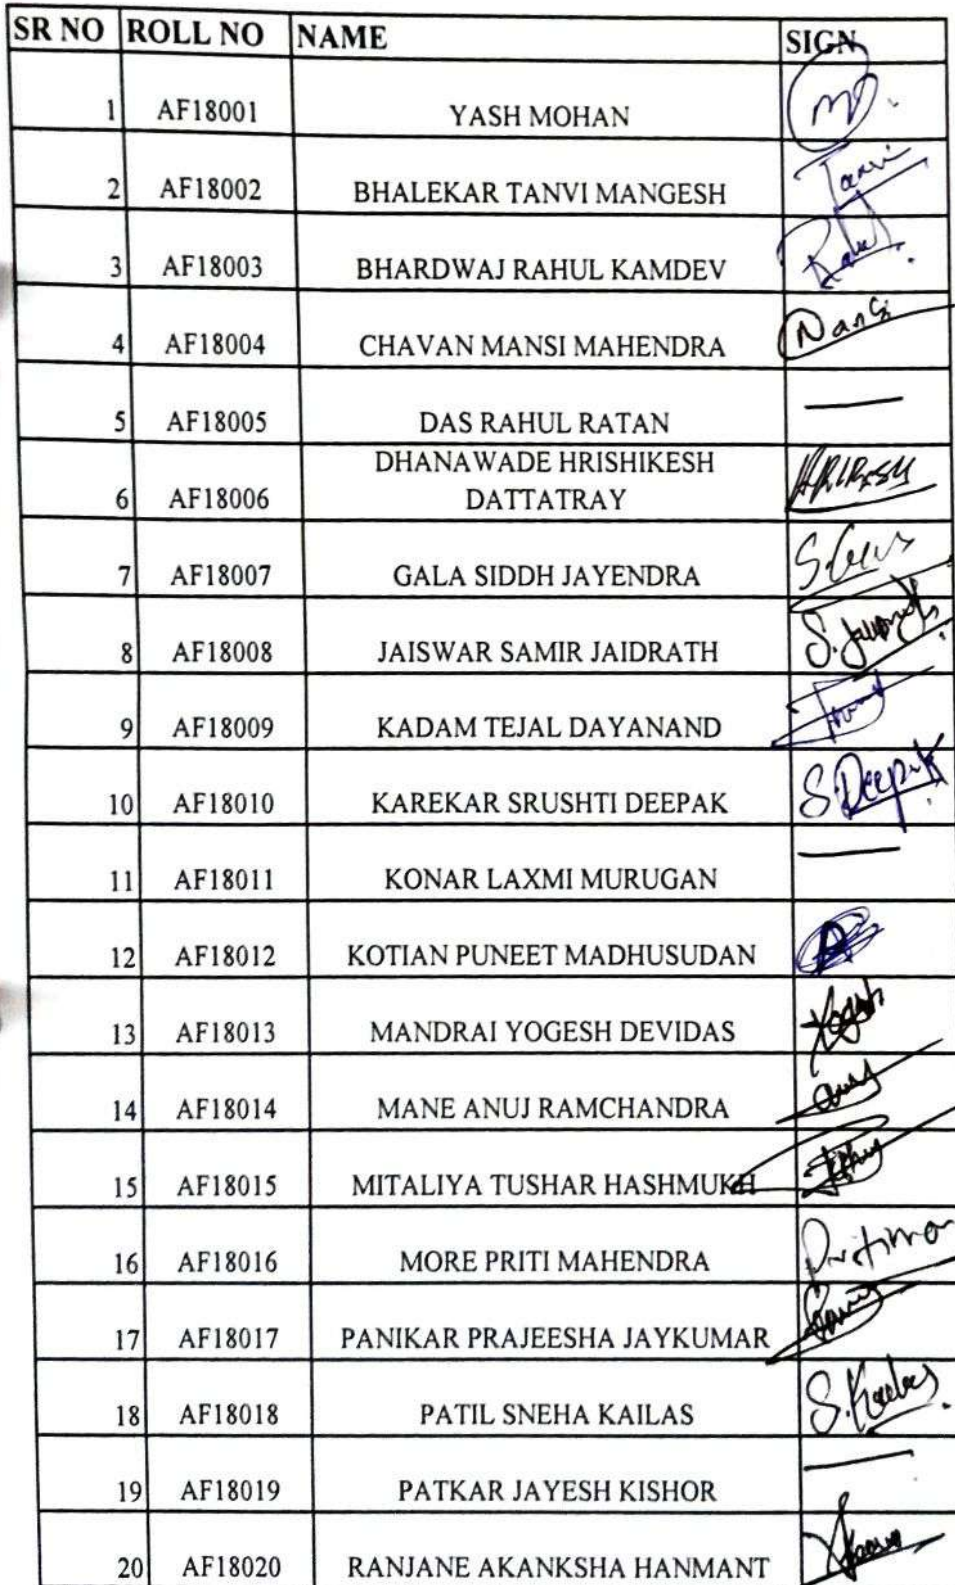 SR NO ROLL NO NAME SIGN
1 AF18001 YASH MOHAN
2 AF18002 BHALEKAR TANVI MANGESH Tanvi
3 AF18003 BHARDWAJ RAHUL KAMDEV Rahul
4 AF18004 CHAVAN MANSI MAHENDRA
5 AF18005 DAS RAHUL RATAN —
DHANAWADE HRISHIKESH
6 AF18006 DATTATRAY
7 AF18007 GALA SIDDH JAYENDRA
8 AF18008 JAISWAR SAMIR JAIDRATH
9 AF18009 KADAM TEJAL DAYANAND
10 AF18010 KAREKAR SRUSHTI DEEPAK S.Deepak
11 AF18011 KONAR LAXMI MURUGAN —
12 AF18012 KOTIAN PUNEET MADHUSUDAN
13 AF18013 MANDRAI YOGESH DEVIDAS Yogesh
14 AF18014 MANE ANUJ RAMCHANDRA
15 AF18015 MITALIYA TUSHAR HASHMUKH
16 AF18016 MORE PRITI MAHENDRA
17 AF18017 PANIKAR PRAJEESHA JAYKUMAR
18 AF18018 PATIL SNEHA KAILAS S.Kailas
19 AF18019 PATKAR JAYESH KISHOR —
20 AF18020 RANJANE AKANKSHA HANMANT